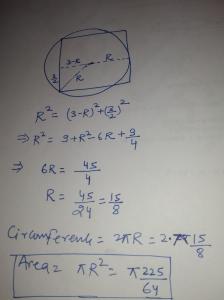 3-R R
R
3/2
R² = (3-R)² + (3/2)²
⇒ R² = 9+R²-6R+9/4
⇒ 6R = 45/4
R = 45/24 = 15/8
Circumference = 2πR = 2·π 15/8
Area = πR² = π 225/64